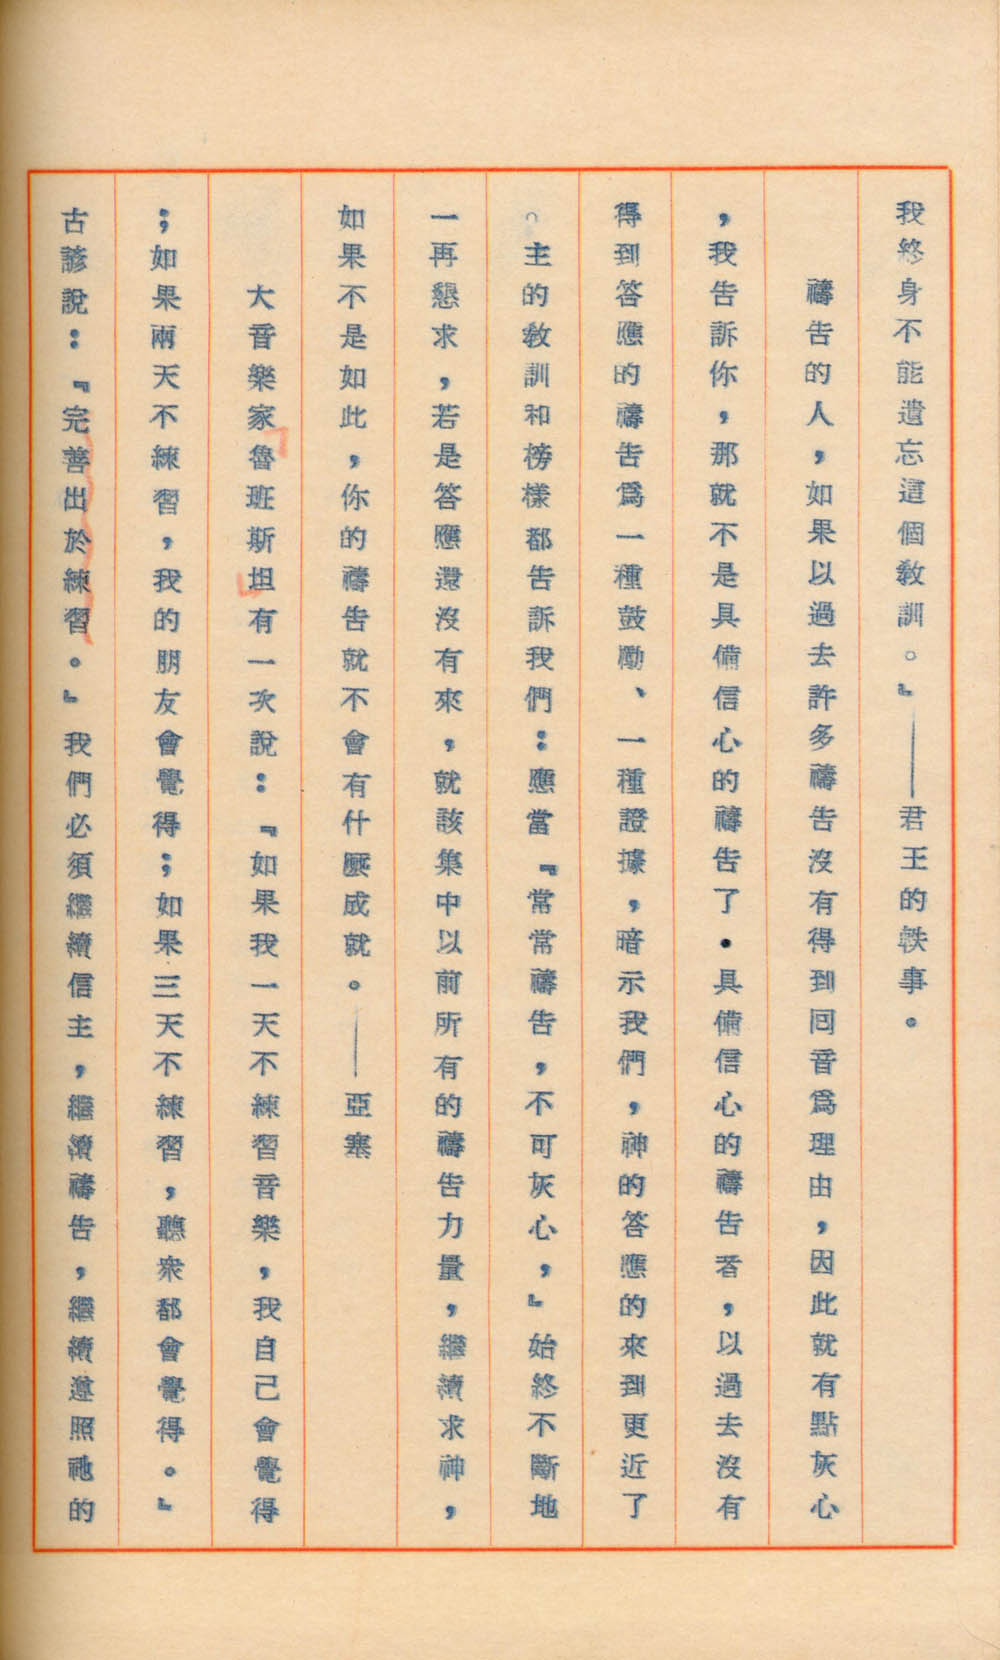 我終身不能遺忘這個教訓。』——君王的軼事。
禱告的人，如果以過去許多禱告沒有得到回音爲理由，因此就有點灰心
，我告訴你，那就不是具備信心的禱告了．具備信心的禱告者，以過去沒有
得到答應的禱告爲一種鼓勵、一種證據，暗示我們，神的答應的來到更近了
。主的教訓和榜樣都告訴我們：應當『常常禱告，不可灰心，』始終不斷地
一再懇求，若是答應還沒有來，就該集中以前所有的禱告力量，繼續求神，
如果不是如此，你的禱告就不會有什麼成就。——亞塞
大音樂家魯班斯坦有一次說：『如果我一天不練習音樂，我自己會覺得
；如果兩天不練習，我的朋友會覺得；如果三天不練習，聽衆都會覺得。』
古諺說：『完善出於練習。』我們必須繼續信主，繼續禱告，繼續遵照祂的